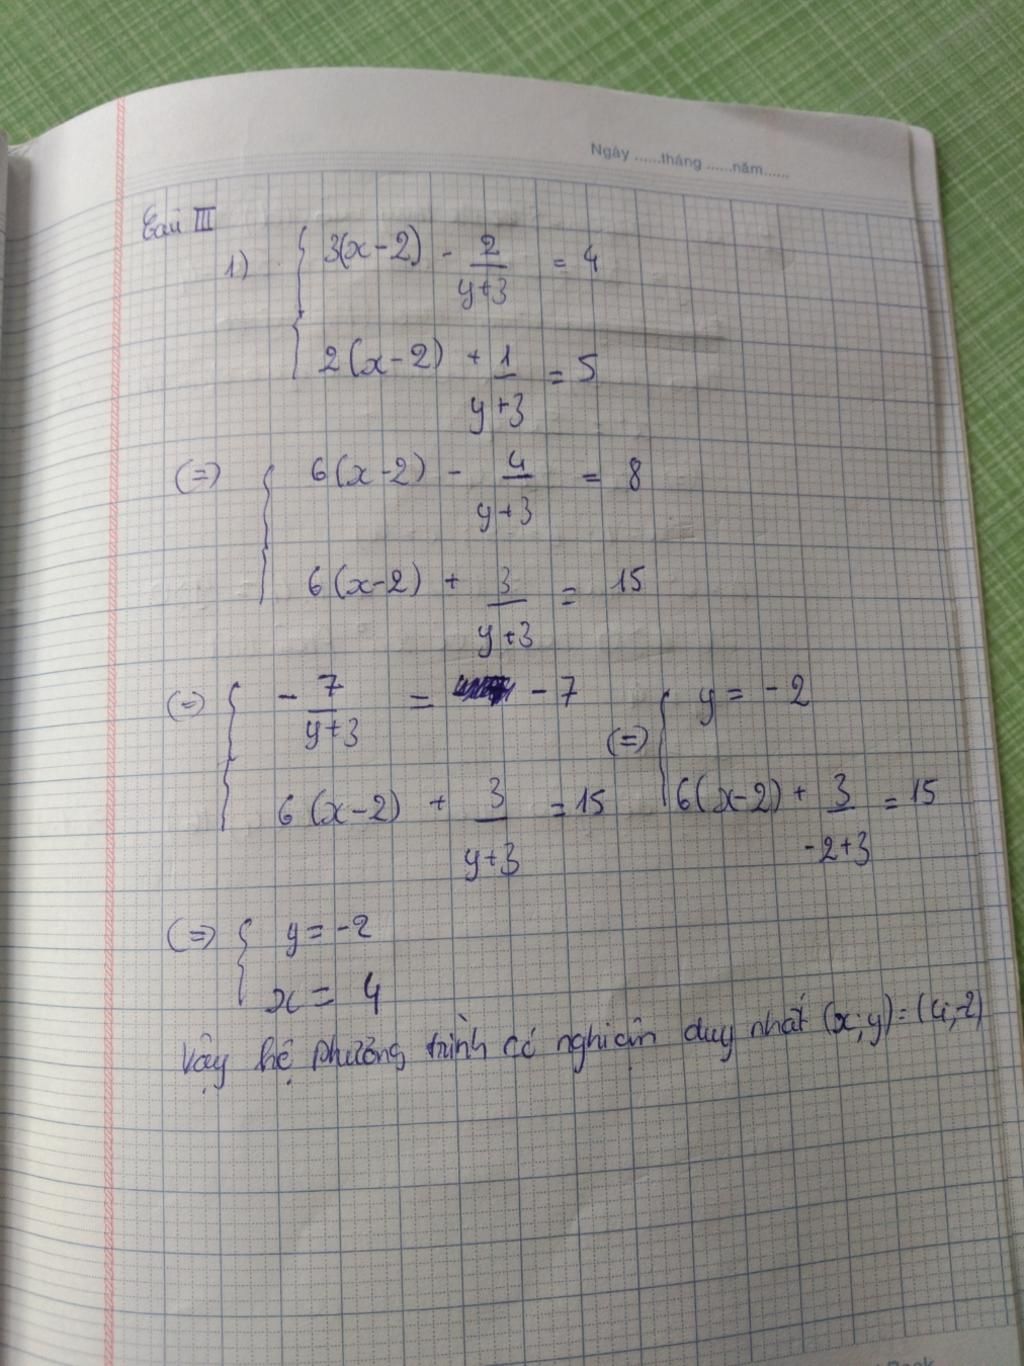 Ngày ......tháng ......năm......
Câu III
1) { 3(x-2) - 2/(y+3) = 4
2(x-2) + 1/(y+3) = 5
(=) { 6(x-2) - 4/(y+3) = 8
6(x-2) + 3/(y+3) = 15
(=) { - 7/(y+3) = -7 (=) { y = -2
6(x-2) + 3/(y+3) = 15 6(x-2) + 3/(-2+3) = 15
(=) { y = -2
x = 4
Vậy hệ phương trình có nghiệm duy nhất (x;y)=(4;-2)